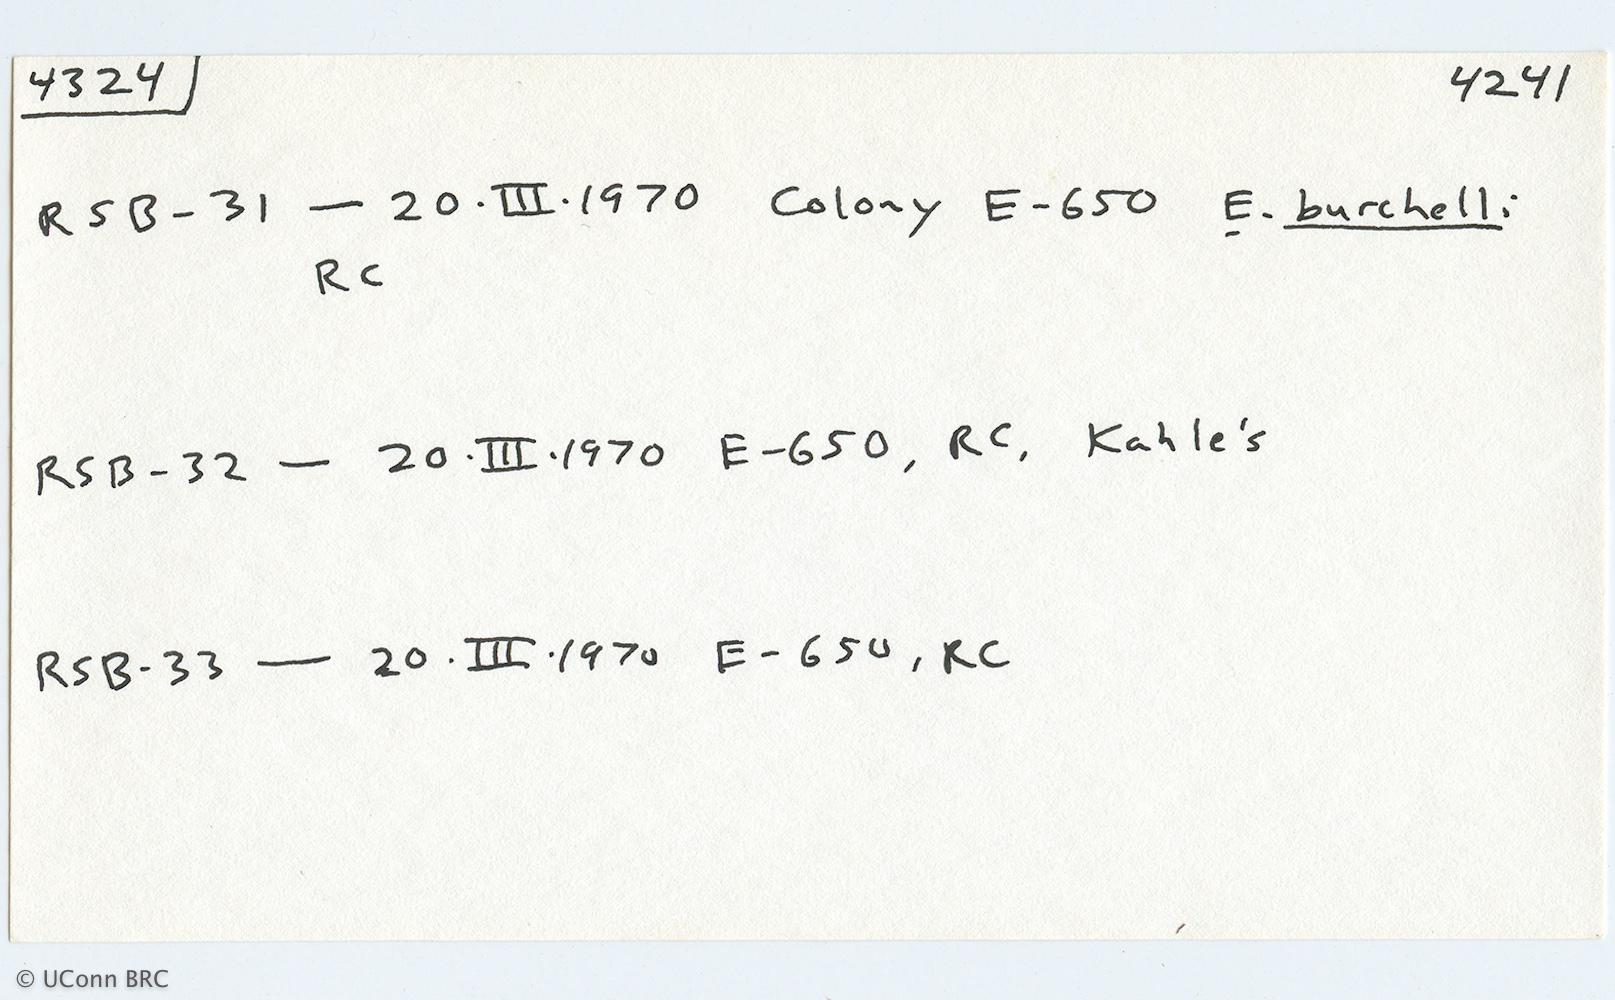 4324 4241
RSB-31 — 20·III·1970 Colony E-650 E. burchelli
RC
RSB-32 — 20·III·1970 E-650, RC, Kahle's
RSB-33 — 20·III·1970 E-650, RC
© UConn BRC